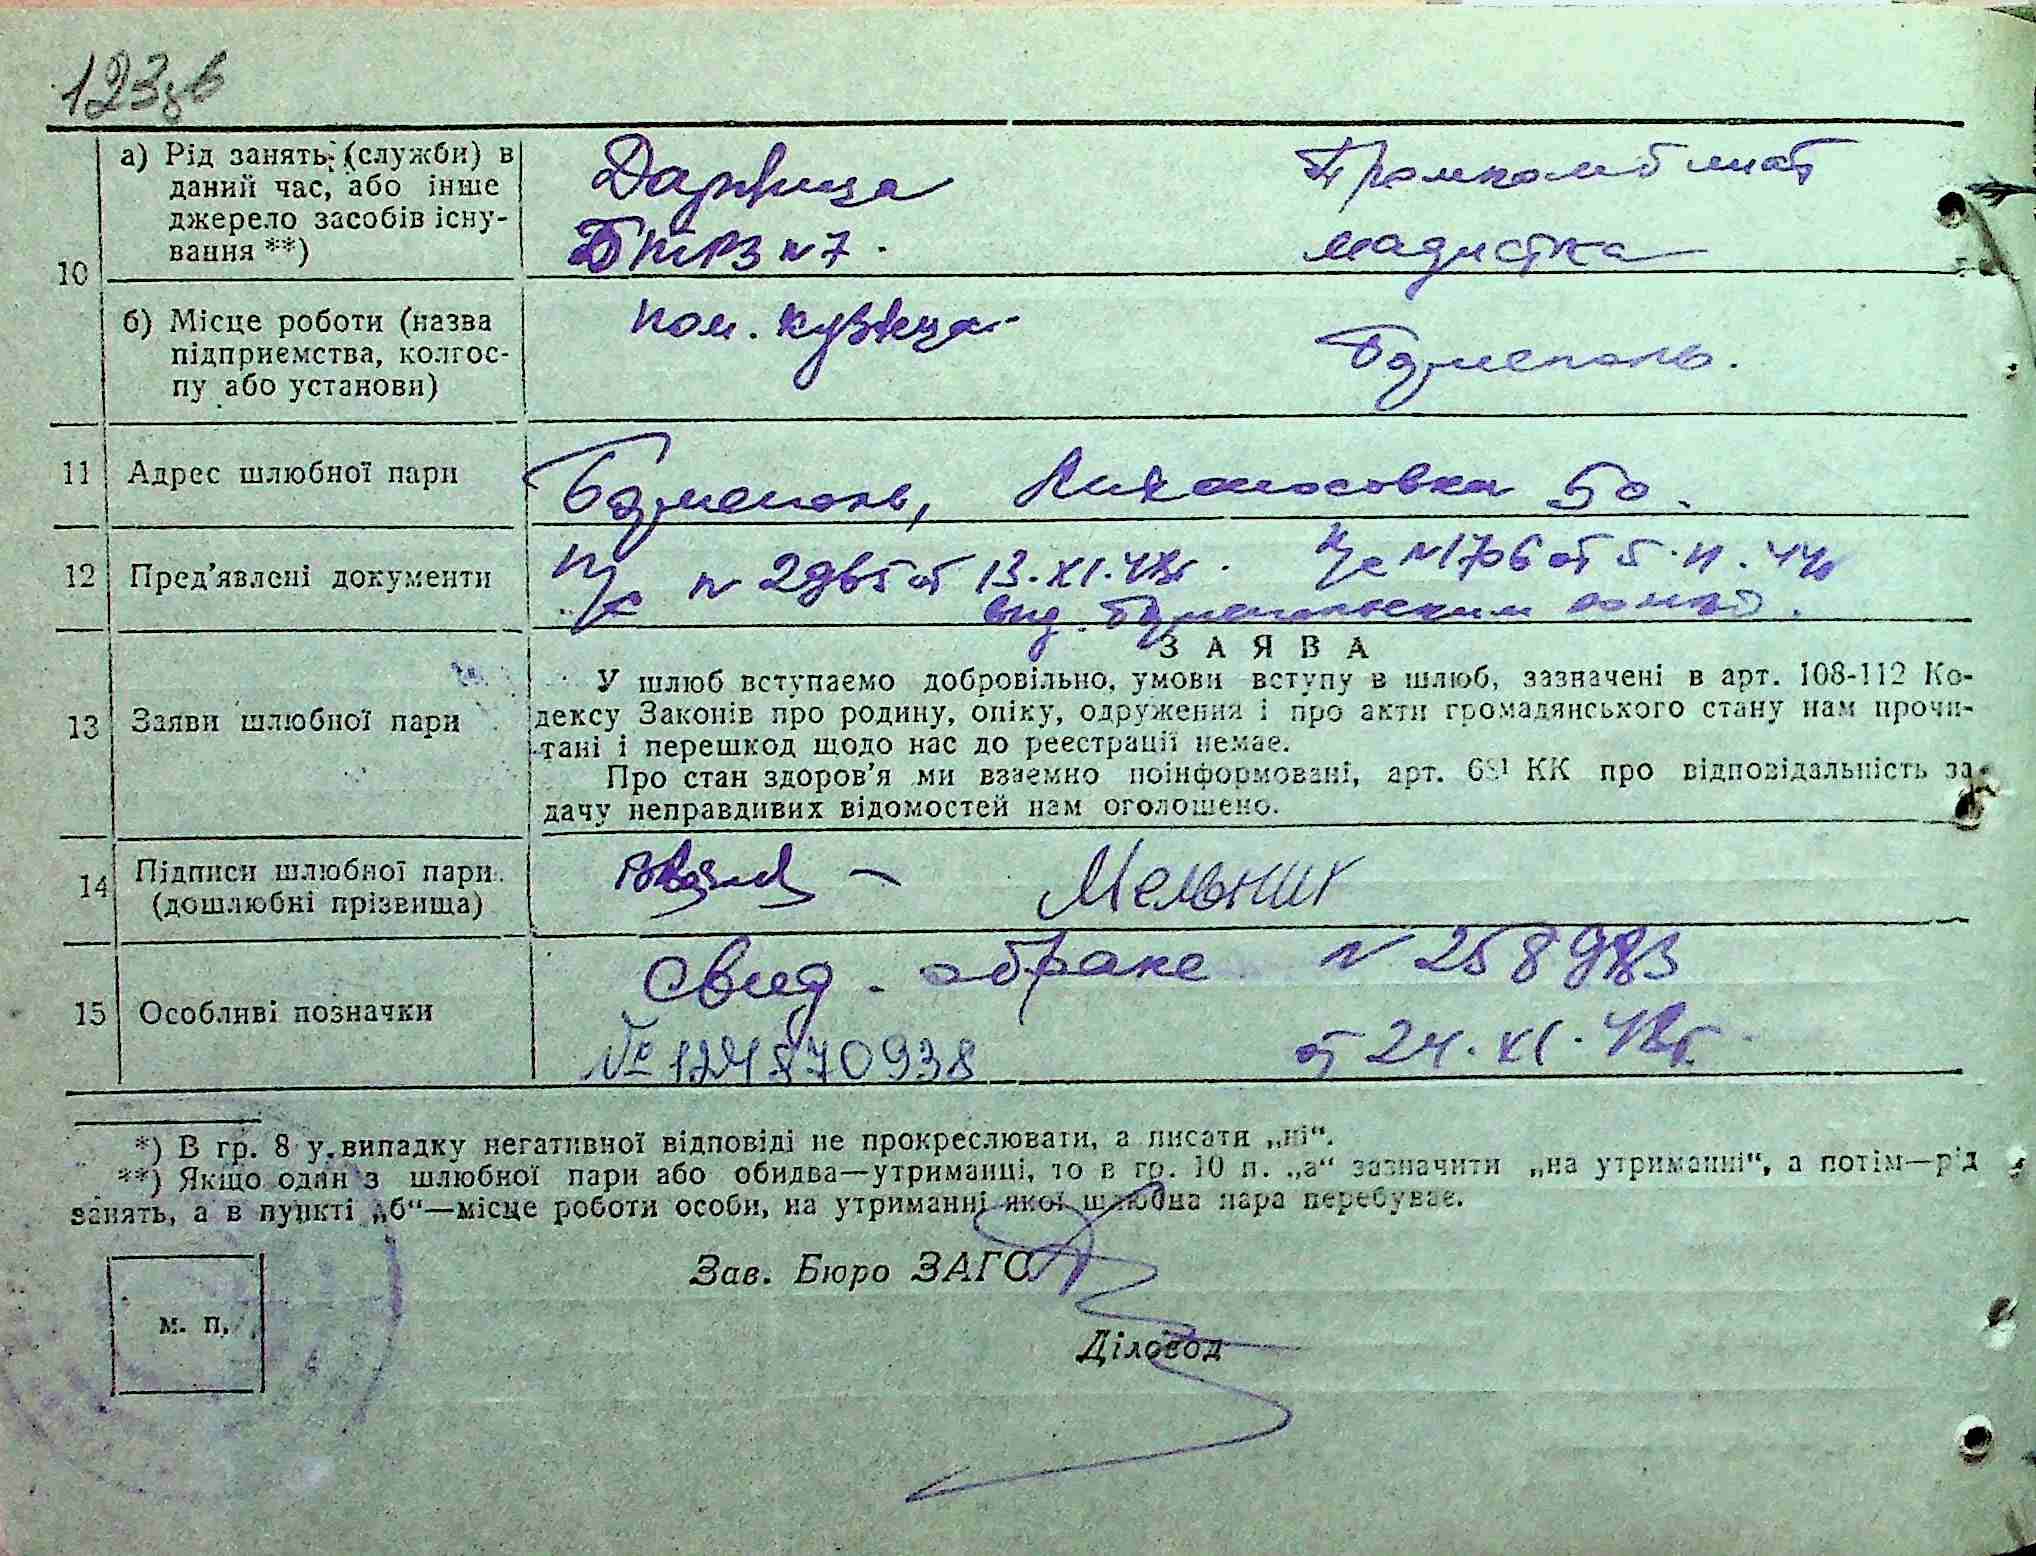 123зв
10
а) Рід занять (служби) в
даний час, або інше
джерело засобів існу-
вання **)
Дарница
БТРЗ N 7.
Промкомбинат
модистка
б) Місце роботи (назва
підприємства, колгос-
пу або установи)
пом. кузнеца
Борисполь.
11 Адрес шлюбної пари
Борисполь, 50.
12 Пред’явлені документи
от 13.XI.
N 1706 от 5.
выд. Бориспольским
13 Заяви шлюбної пари
ЗАЯВА
У шлюб вступаємо добровільно, умови вступу в шлюб, зазначені в арт. 108-112 Ко-
дексу Законів про родину, опіку, одруження і про акти громадянського стану нам прочи-
тані і перешкод щодо нас до реєстрації немає.
Про стан здоров’я ми взаємно поінформовані, арт. 68¹ КК про відповідальність за
дачу неправдивих відомостей нам оголошено.
14 Підписи шлюбної пари
(дошлюбні прізвища)
Мельник
15 Особливі позначки
Свид. о браке N 258983
№ 124870938
от 24.XI.48г.
*) В гр. 8 у випадку негативної відповіді не прокреслювати, а писати „ні“.
**) Якщо один з шлюбної пари або обидва—утриманці, то в гр. 10 п. „а“ зазначити „на утриманні“, а потім—рід
занять, а в пункті „б“—місце роботи особи, на утриманні якої шлюбна пара перебуває.
Зав. Бюро ЗАГС
м. п.
Діловод